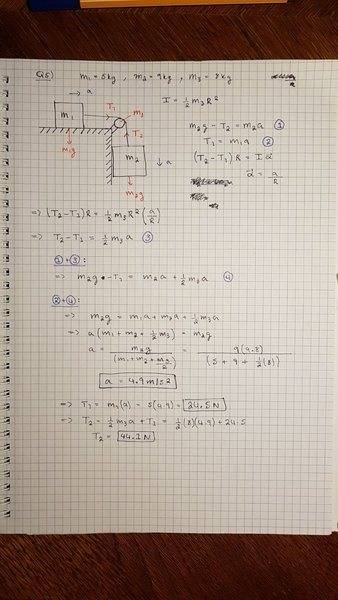 Q5) m₁ = 5kg , m₂ = 9kg , m₃ = 8kg
→ a
m₁
T₁
m₃
m₁g
T₂
m₂
↓ a
m₂g
I = ½ m₃R²
m₂g - T₂ = m₂a ①
T₁ = m₁a ②
(T₂-T₁)R = Iα
α = a/R
=> (T₂-T₁)R = ½ m₃R² (a/R)
=> T₂-T₁ = ½ m₃a ③
①+③:
=> m₂g - T₁ = m₂a + ½ m₃a ④
②+④:
=> m₂g = m₁a + m₂a + ½ m₃a
=> a(m₁ + m₂ + ½ m₃) = m₂g
a = m₂g / (m₁ + m₂ + m₃/2) = 9(9.8) / (5 + 9 + ½(8))
a = 4.9 m/s2
=> T₁ = m₁(a) = 5(4.9) = 24.5N
=> T₂ = ½ m₃a + T₁ = ½(8)(4.9) + 24.5
T₂ = 44.1N